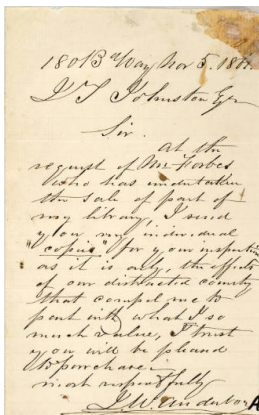 1801 B Way Nov 5. 18
J T Johnston Esqr
Sir.
at the
request of Mr Forbes
who has undertaken
the sale of part of
my library, I send
you my individual
"copies" for your inspection
as it is only, the effects
of our distracted country
that compel me to
part with what I so
much value, I trust
you will be pleased
to purchase.
most respectfully
J. W. Audubon
A